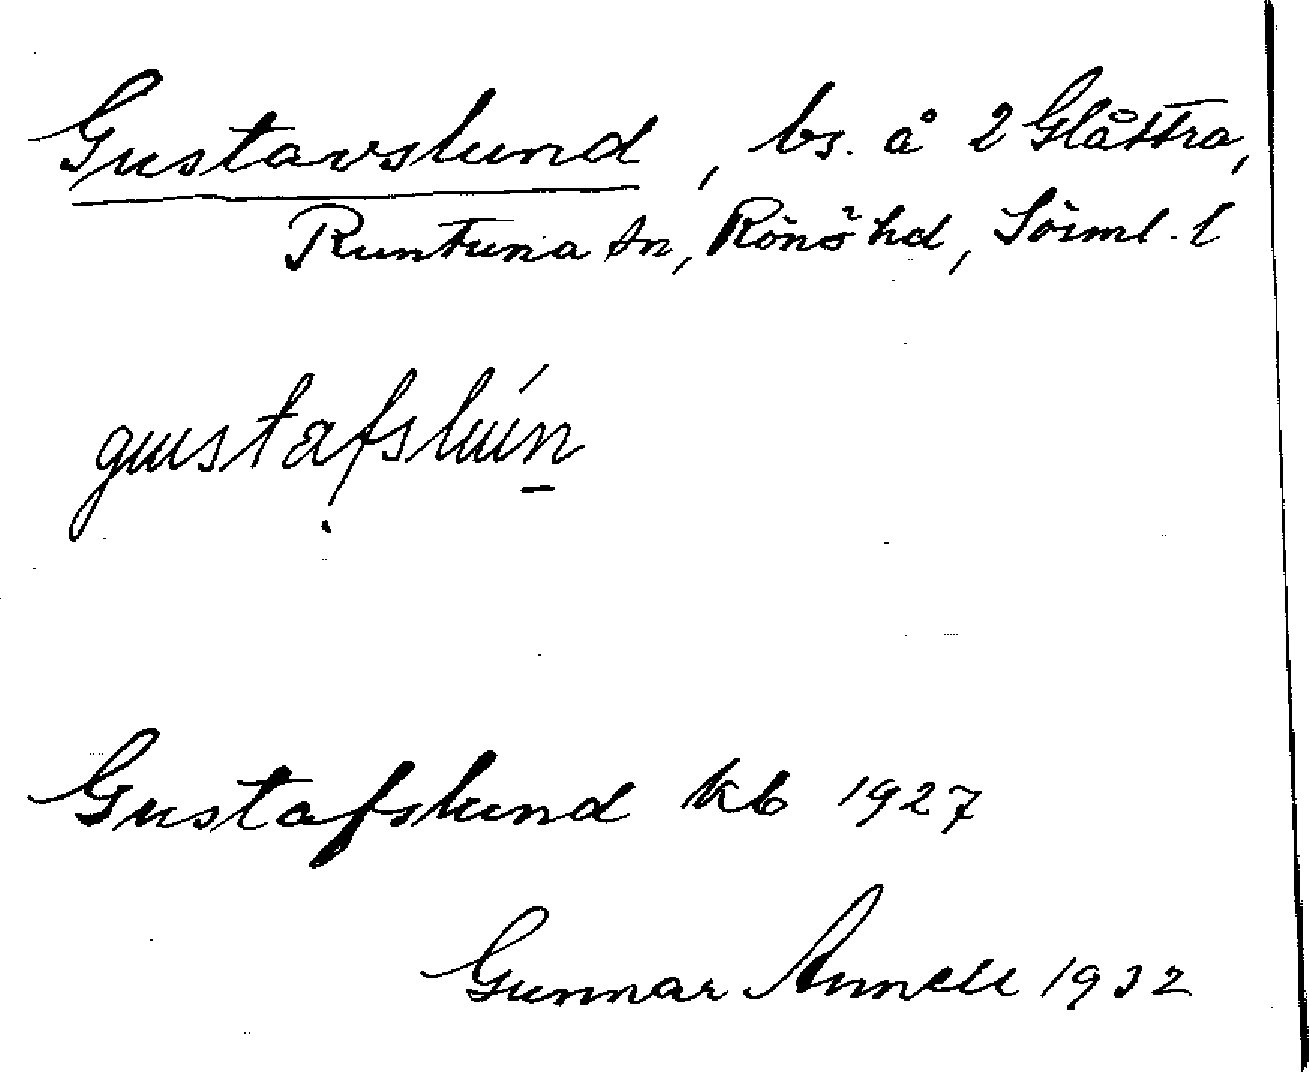 Gustavslund, bs. å 2 Glåttra,
Runtuna sn, Rönö hd, Sörml. l
gustafslún
Gustafslund kb 1927
Gunnar Annell 1932